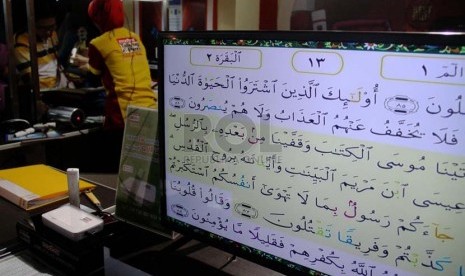 الٓمّٓ ١
١٣
ٱلْبَقَرَة ٢
أُو۟لَٰٓئِكَ ٱلَّذِينَ ٱشْتَرَوُا۟ ٱلْحَيَوٰةَ ٱلدُّنْيَا
فَلَا يُخَفَّفُ عَنْهُمُ ٱلْعَذَابُ وَلَا هُمْ يُنصَرُونَ
مُوسَى ٱلْكِتَٰبَ وَقَفَّيْنَا مِنۢ بَعْدِهِۦ بِٱلرُّسُلِ
عِيسَى ٱبْنَ مَرْيَمَ ٱلْبَيِّنَٰتِ وَأَيَّدْنَٰهُ بِرُوحِ ٱلْقُدُسِ
جَآءَكُمْ رَسُولٌۢ بِمَا لَا تَهْوَىٰٓ أَنفُسُكُمُ ٱسْتَكْبَرْتُمْ
كَذَّبْتُمْ وَفَرِيقًا تَقْتُلُونَ وَقَالُوا۟ قُلُوبُنَا
ٱللَّهُ بِكُفْرِهِمْ فَقَلِيلًا مَّا يُؤْمِنُونَ